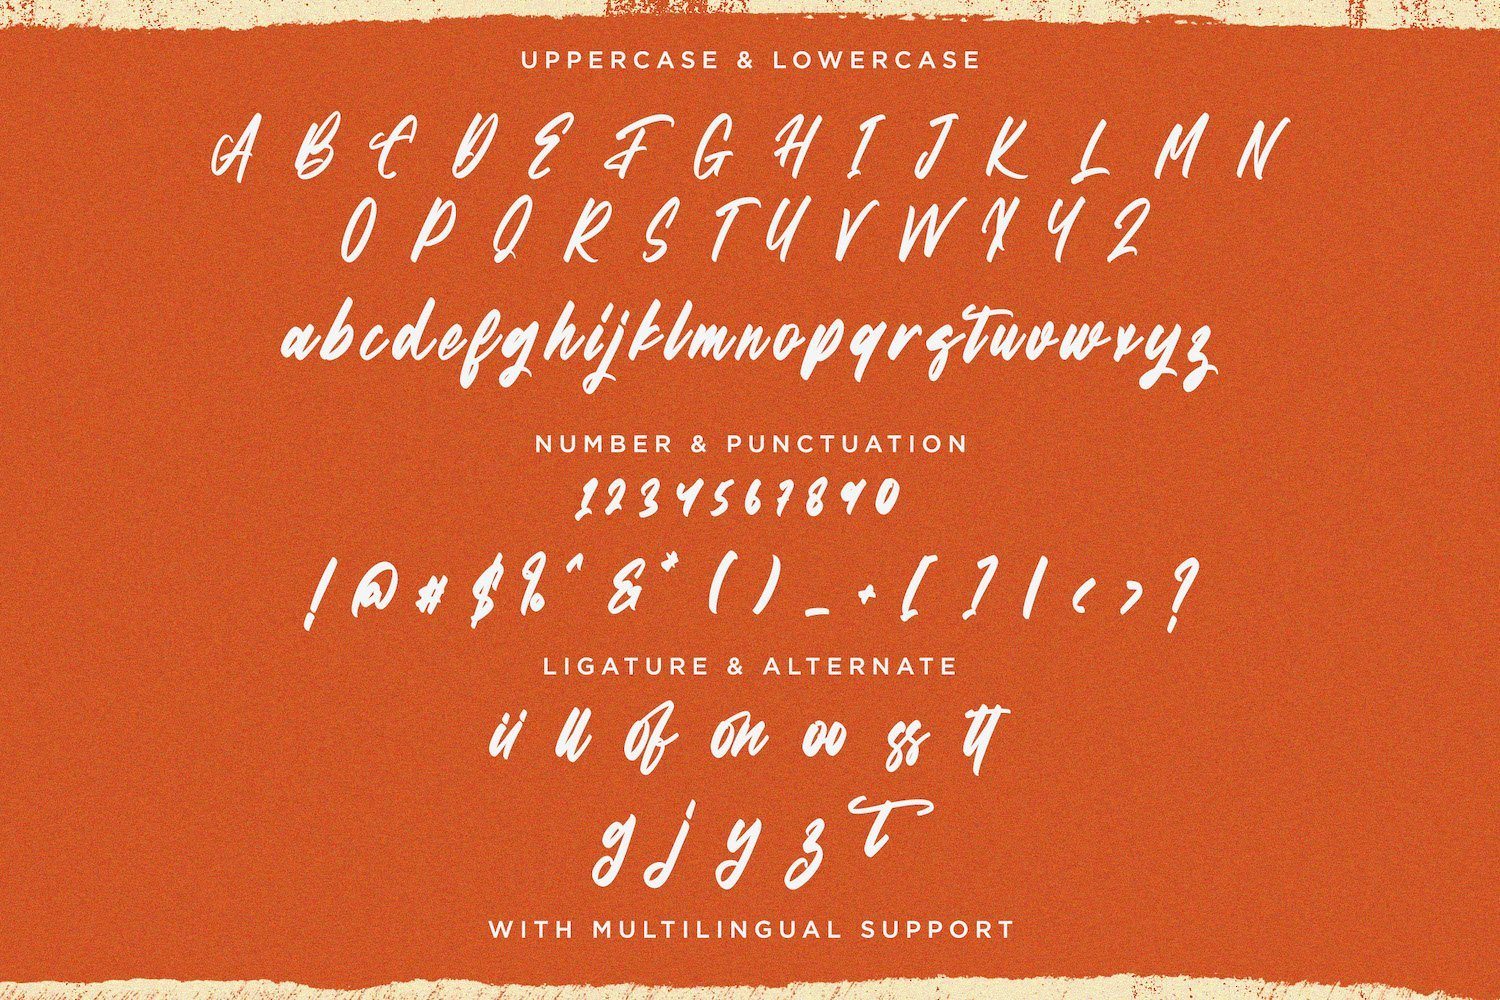 UPPERCASE & LOWERCASE
A B C D E F G H I J K L M N
O P Q R S T U V W X Y Z
abcdefghijklmnopqrstuvwxyz
NUMBER & PUNCTUATION
1 2 3 4 5 6 7 8 9 0
! @ # $ % ^ & * ( ) _ + [ ] | < > ?
LIGATURE & ALTERNATE
ii ll of on oo ss tt
g j y z t
WITH MULTILINGUAL SUPPORT